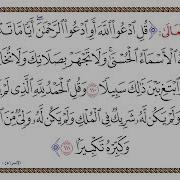 تعالى: ﴿ قُلِ ٱدْعُوا۟ ٱللَّهَ أَوِ ٱدْعُوا۟ ٱلرَّحْمَـٰنَ ۖ أَيًّا مَّا تَدْ
ٱلْأَسْمَآءُ ٱلْحُسْنَىٰ ۚ وَلَا تَجْهَرْ بِصَلَاتِكَ وَلَا تُخَا
ٱبْتَغِ بَيْنَ ذَٰلِكَ سَبِيلًا ١١٠ وَقُلِ ٱلْحَمْدُ لِلَّهِ ٱلَّذِى لَمْ
وَلَمْ يَكُن لَّهُۥ شَرِيكٌ فِى ٱلْمُلْكِ وَلَمْ يَكُن لَّهُۥ وَلِىٌّ مِّنَ
وَكَبِّرْهُ تَكْبِيرًۢا ١١١ ﴾